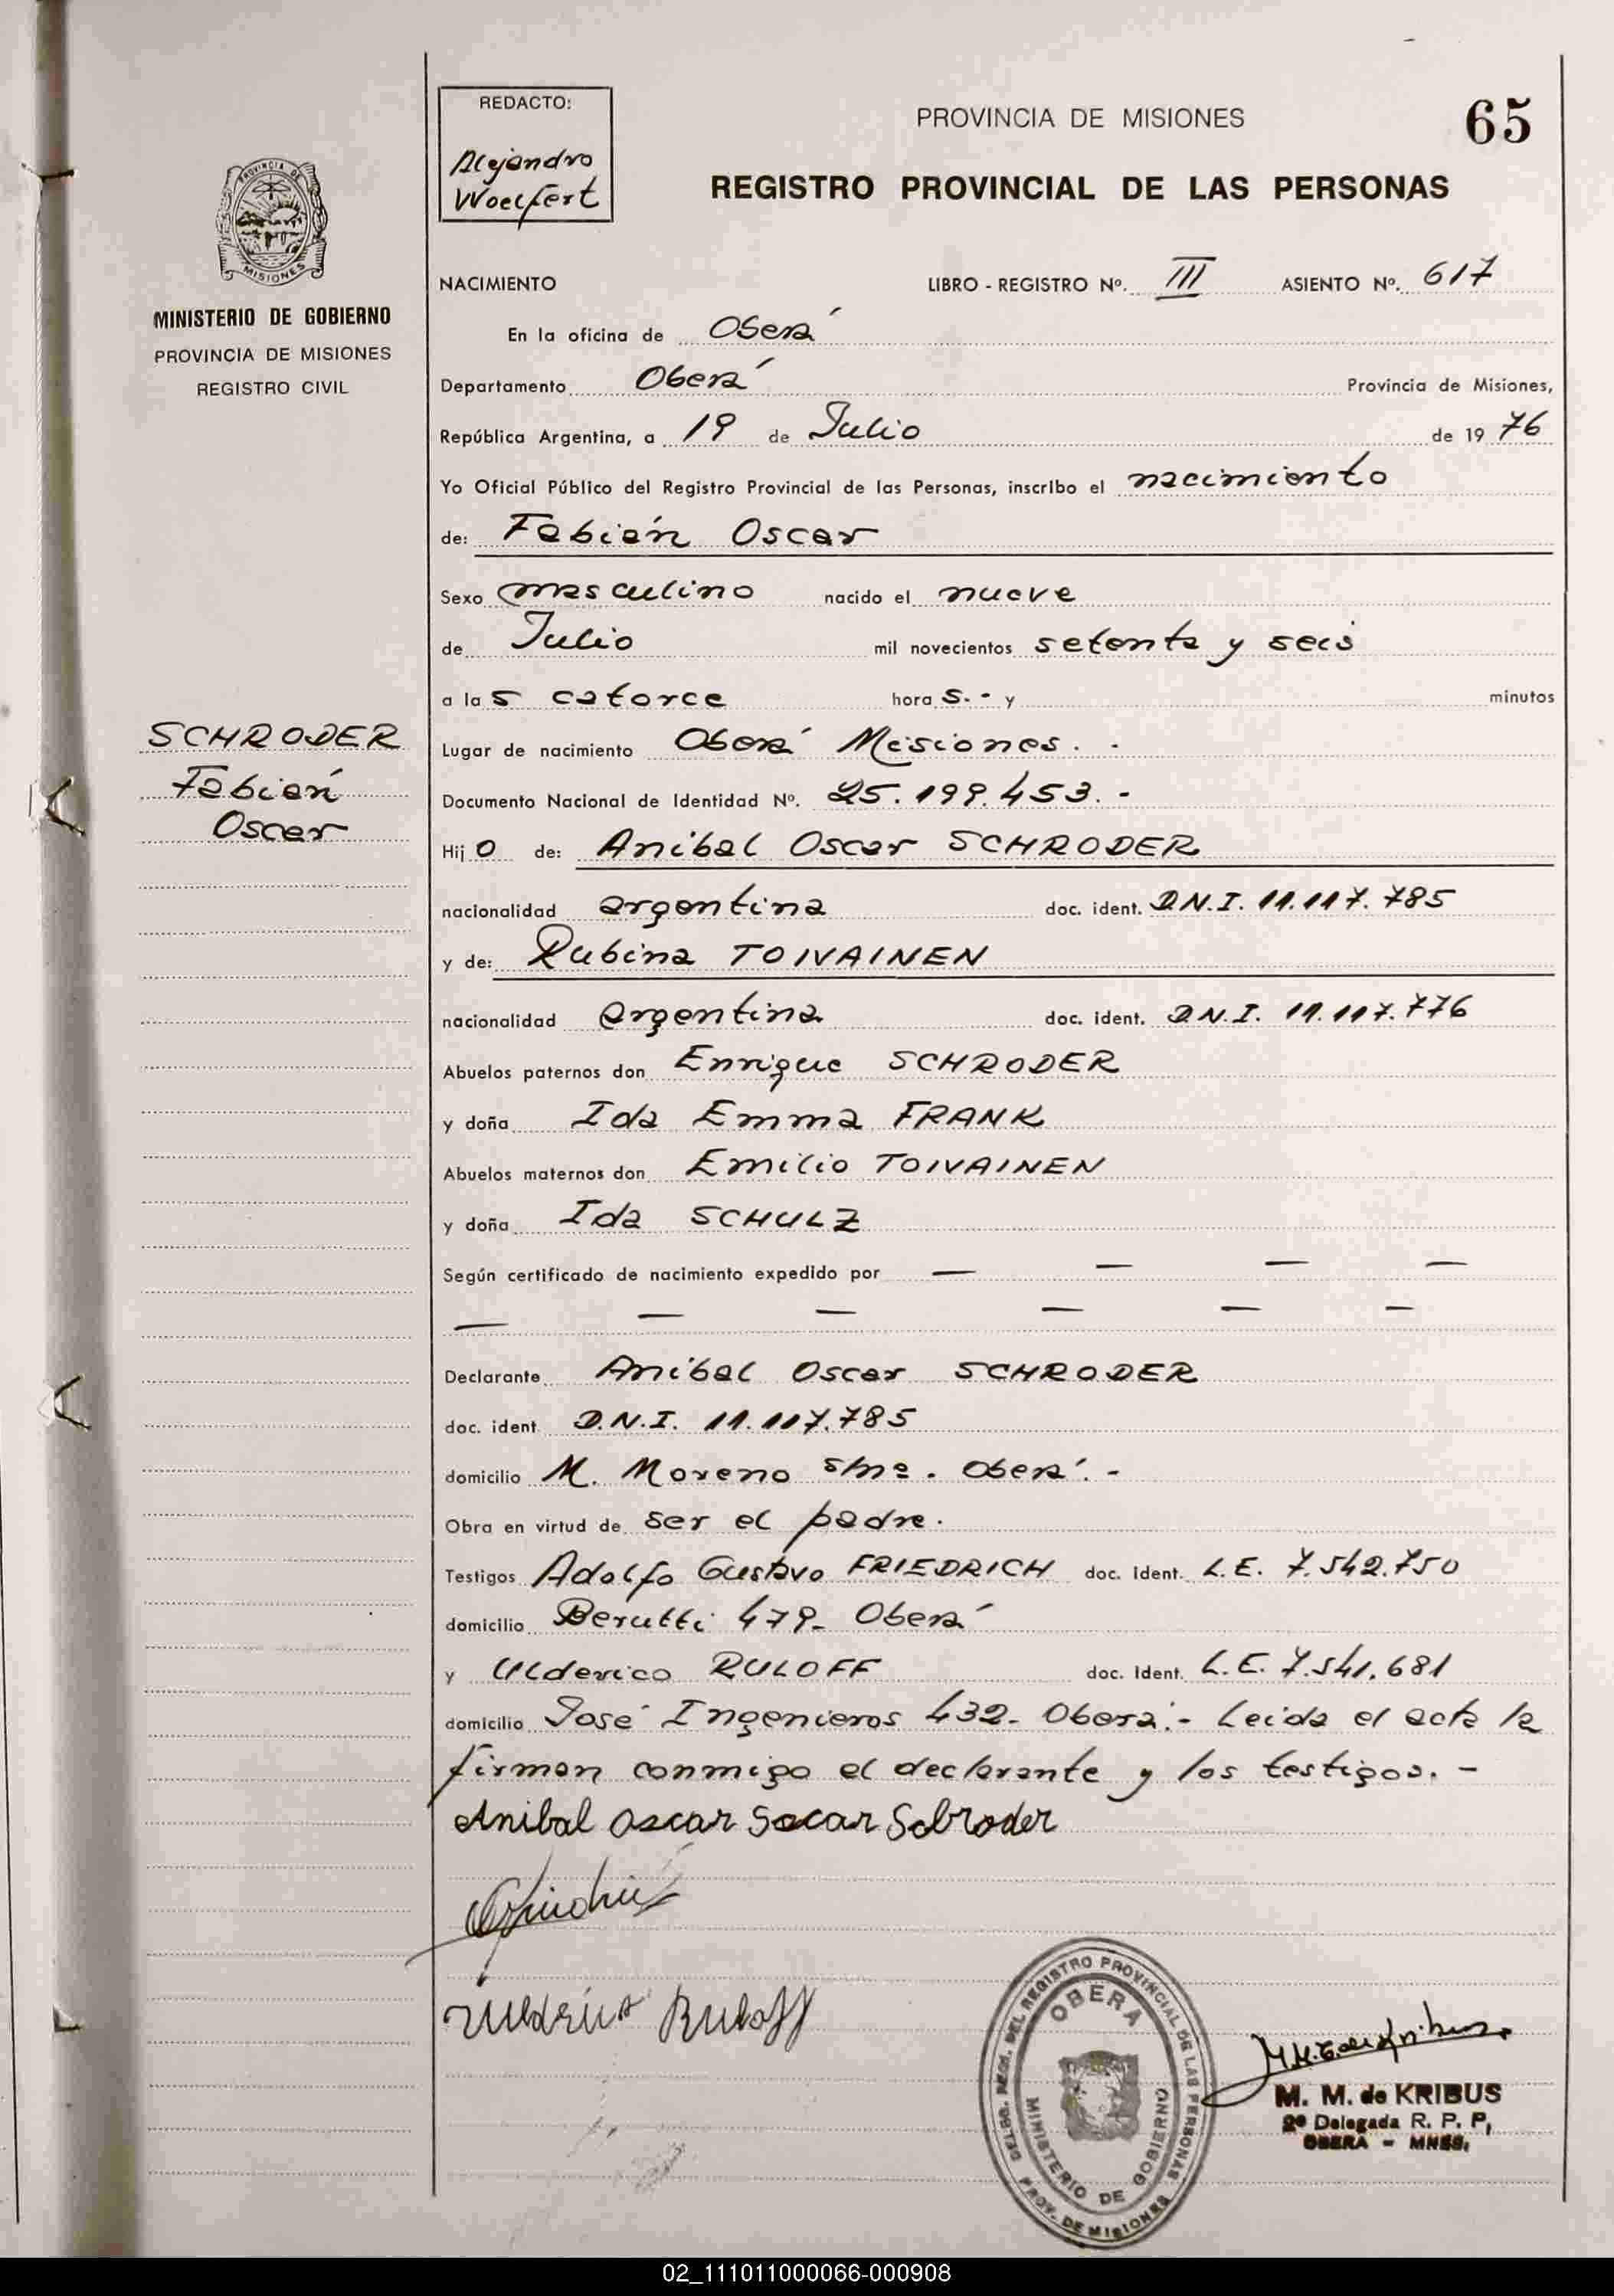 REDACTO:
Alejandro
Woelfert
PROVINCIA DE MISIONES
65
REGISTRO PROVINCIAL DE LAS PERSONAS
PROVINCIA DE
MISIONES
MINISTERIO DE GOBIERNO
PROVINCIA DE MISIONES
REGISTRO CIVIL
NACIMIENTO LIBRO - REGISTRO Nº. III ASIENTO Nº. 617
En la oficina de Oberá
Departamento Oberá Provincia de Misiones,
República Argentina, a 19 de Julio de 19 76
Yo Oficial Público del Registro Provincial de las Personas, inscribo el nacimiento
de: Fabián Oscar
Sexo masculino nacido el nueve
de Julio mil novecientos setenta y seis
a la s catorce hora s.- y minutos
SCHRODER
Fabián
Oscar
Lugar de nacimiento Oberá Misiones. -
Documento Nacional de Identidad Nº. 25.199.453. -
Hij o de: Anibal Oscar SCHRODER
nacionalidad argentina doc. ident. D.N.I. 11.117.785
y de: Rubina TOIVAINEN
nacionalidad argentina doc. ident. D.N.I. 11.117.776
Abuelos paternos don Enrique SCHRODER
y doña Ida Emma FRANK
Abuelos maternos don Emilio TOIVAINEN
y doña Ida SCHULZ
Según certificado de nacimiento expedido por — — — —
— — — — — —
Declarante Anibal Oscar SCHRODER
doc. ident. D.N.I. 11.117.785
domicilio M. Moreno s/nº. Oberá. -
Obra en virtud de ser el padre.
Testigos Adolfo Gustavo FRIEDRICH doc. ident. L.E. 7.542.750
domicilio Berutti 479- Oberá
y Ulderico RULOFF doc. Ident. L.E. 7.541.681
domicilio José Ingenieros 432- Oberá.- Leida el acta la
firman conmigo el declarante y los testigos. -
Anibal Oscar Socar Schroder
Ruloff
DELEG. REGI. DEL REGISTRO PROVINCIAL DE LAS PERSONAS
OBERA
MINISTERIO DE GOBIERNO
PROV. DE MISIONES
M. M. de KRIBUS
2ª Delegada R. P. P,
OBERA - MNES,
02_111011000066-000908